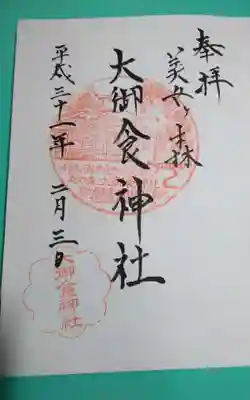 奉拝
美女ヶ森
大御食神社
平成三十一年 二月三日
大御食神社